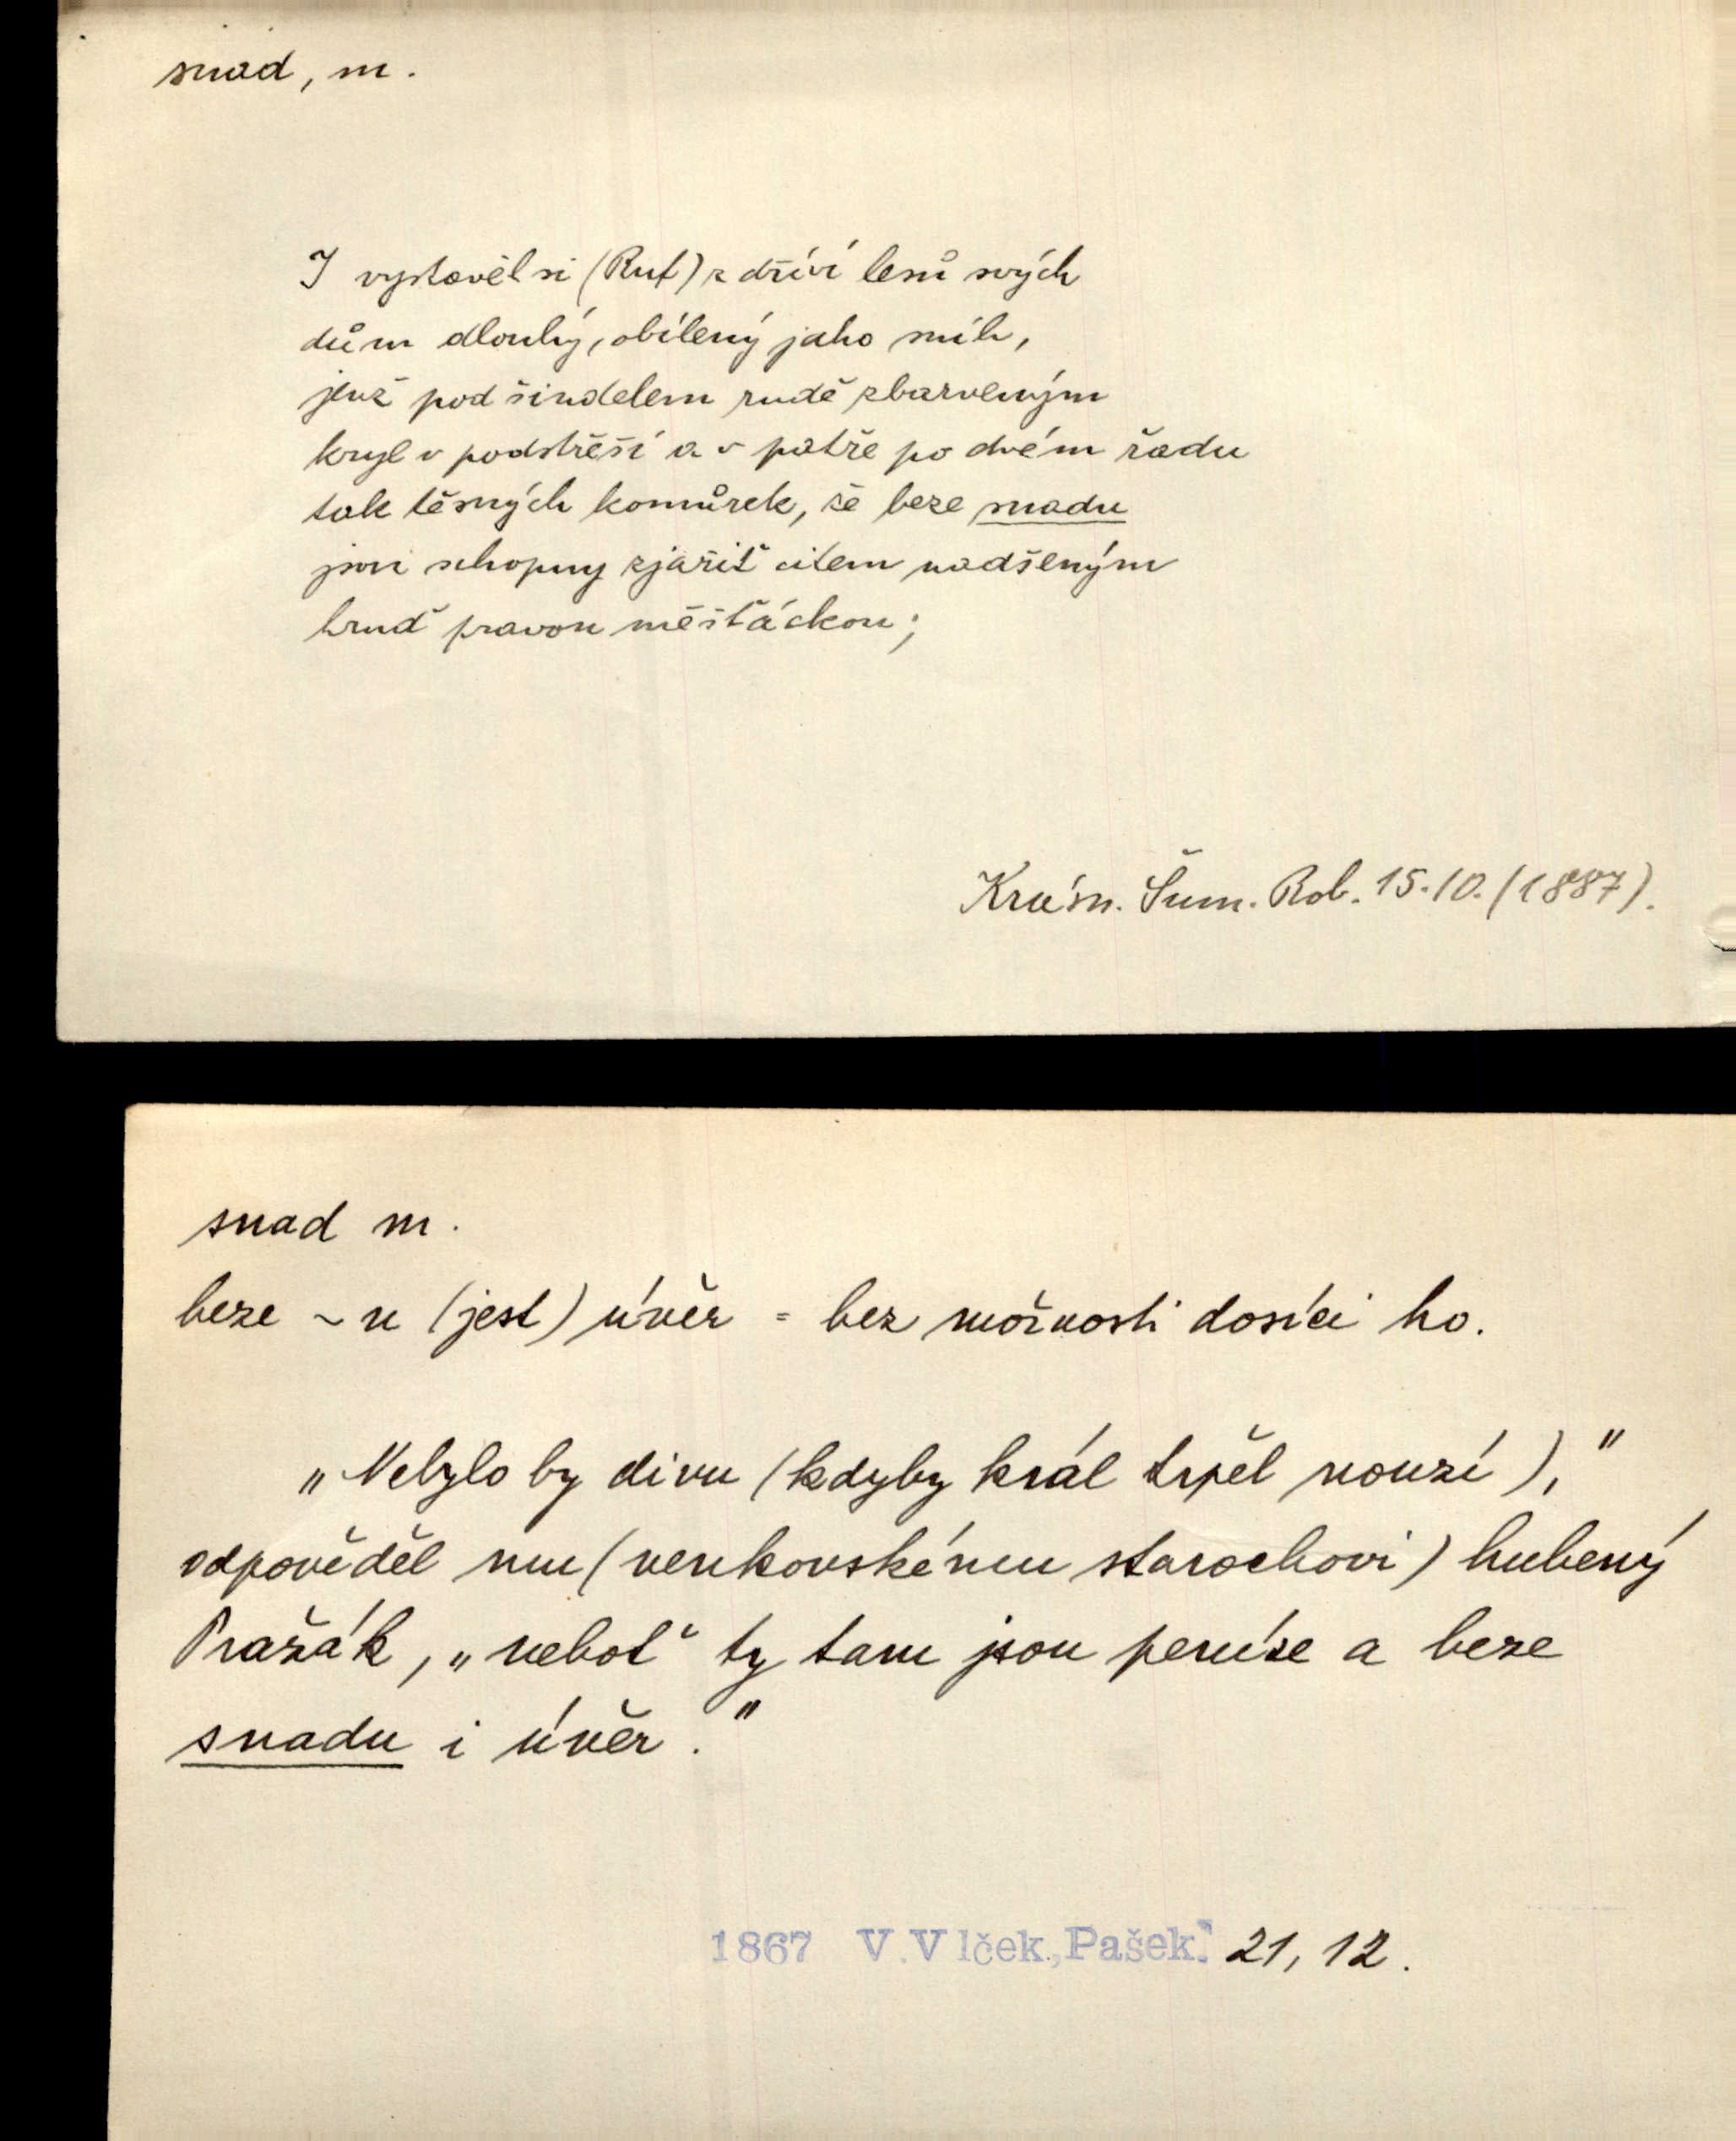 snad, m.
I vystavěl si (Ruf) z dříví lesů svých
dům dlouhý, obílený jako sníh,
jenž pod šindelem rudě zbarveným
kryl v podstřeší a v patře po dvém řadu
tak těsných komůrek, že beze snadu
jsou schopny zjařiť citem nadšeným
hruď pravou měšťáckou;
Krásn. Šum. Rob. 15.10. (1887).
snad m.
beze ~u (jest) úvěr = bez možnosti dosíci ho.
„Nebylo by divu (kdyby král trpěl nouzí),"
odpověděl mu (venkovskému starochovi) hubený
Pražák, „neboť ty tam jsou peníze a beze
snadu i úvěr."
1867 V. Vlček, Pašek. 21, 12.